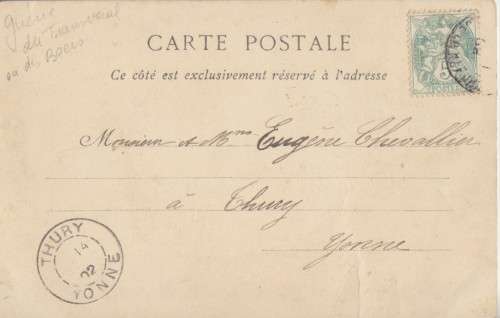 guerre
du Transvaal
ou des Boers
CARTE POSTALE
Ce côté est exclusivement réservé à l'adresse
Monsieur et Mme Eugène Chevallier
à Thury
Yonne
THURY
14
02
YONNE